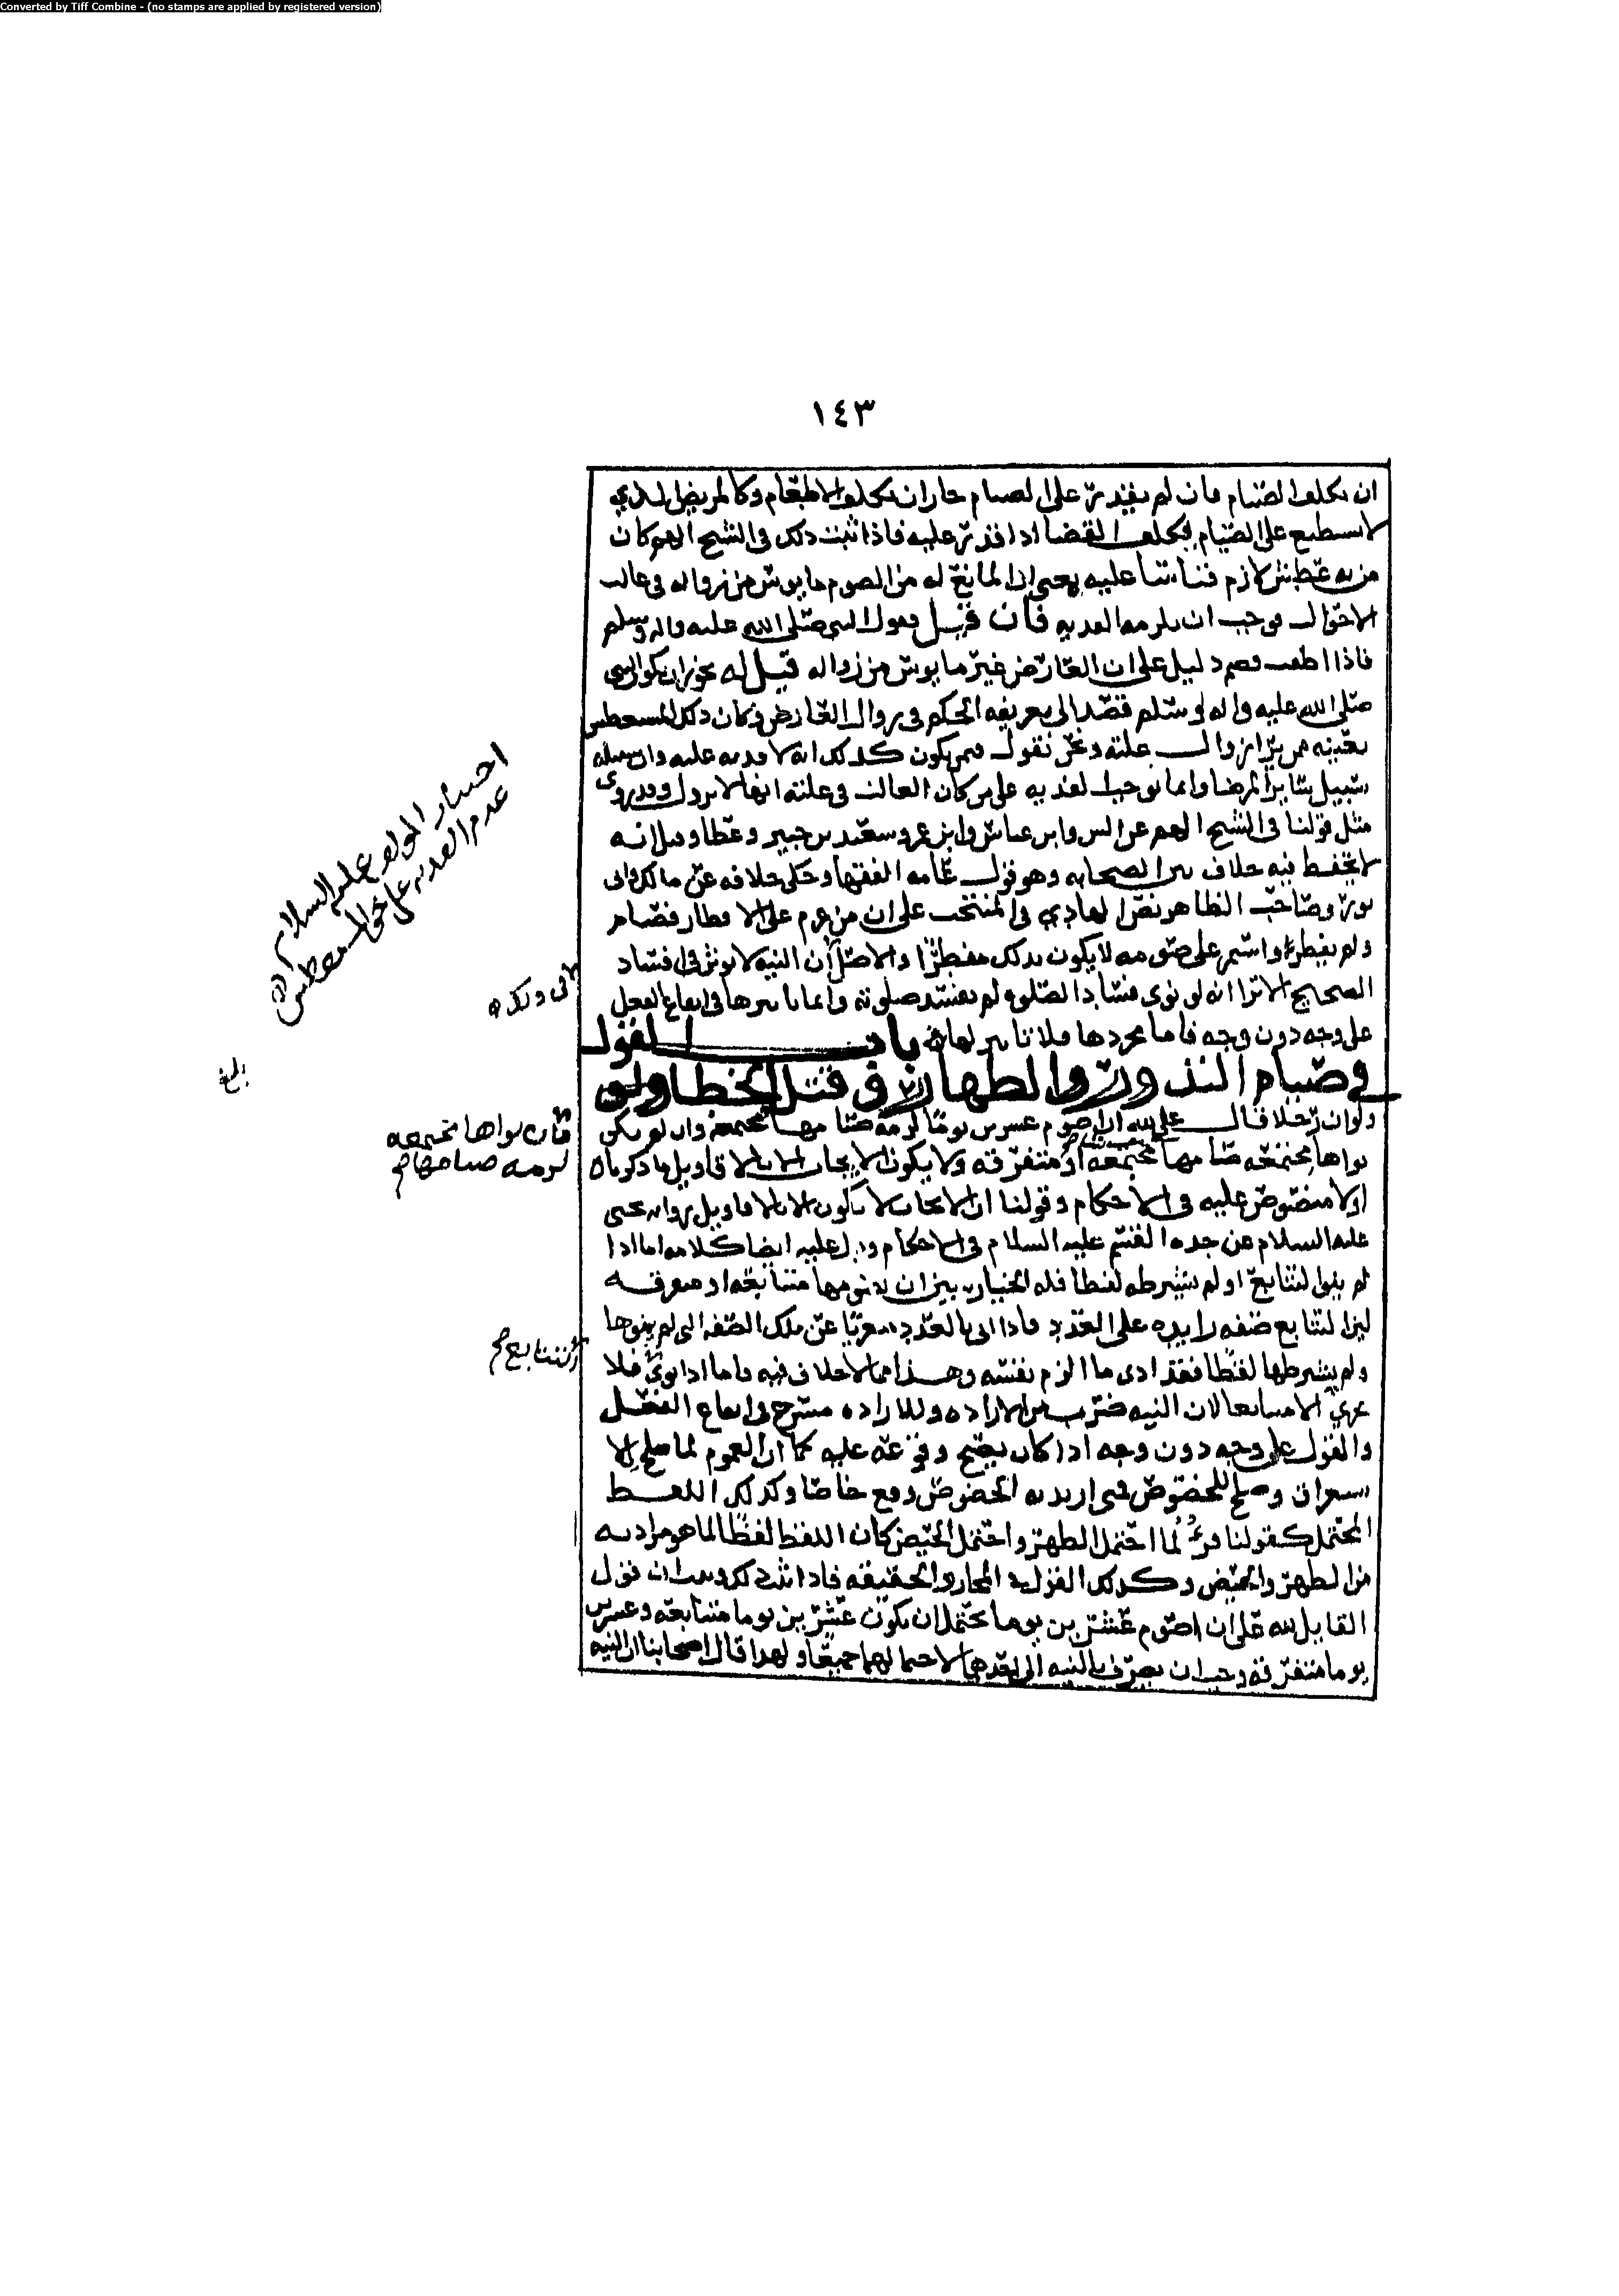 Converted by Tiff Combine - (no stamps are applied by registered version)
١٤٣
ان يكلف الصيام فان لم يقدر على الصيام جاز ان يكلف الاطعام وكالمريض الذي
لا يستطيع على الصيام يكلف القضا اذا قدر عليه فاذا ثبت ذلك في الشيخ الهم كان
من به عطش لازم قياسا عليه بمعنى ان المانع له من الصوم مايوس من زواله في غالب
الاحوال فوجب ان يلزمه الفديه فان قيل فقول النبي صلى الله عليه واله وسلم
فاذا اطقت فصم دليل على ان العارض غير مايوس من زواله قيل له يجوز ان يكون النبي
صلى الله عليه واله وسلم قصد الى تعريفه الحكم في زوال العارض وكان ذلك المستعطش
بعينه ممن يرا زوال علته ونحن نقول فمن يكون كذلك انه لا فديه عليه وان سبيله
سبيل سائر المرضا وانما نوجب الفديه على من كان الغالب في علته انها لا تزول وقد روي
مثل قولنا في الشيخ الهم عن انس وابن عباس وابن عمر وسعيد بن جبير وعطا وقيل انه
لا يحفظ فيه خلاف بين الصحابه وهو قول عامه الفقها وحكي خلافه عن مالك وابي
ثور وصاحب الظاهر نص الهادي في المنتخب على ان من عزم على الافطار فصام
ولم يفطر واستمر على صومه لا يكون بذلك مفطرا والاصل ان النيه لا توثر في افساد
الصحيح الا ترا انه لو نوى فساد الصلوه لم تفسد صلوته وانما تاثيرها في ايقاع الفعل
على وجه دون وجه فاما مجردها فلا تاثير لها في باب القول
في صيام النذور والظهار في قتل الخطا ولو
ولو ان رجلا قال علي لله ان اصوم عشرين يوما لزمه صيامها مجتمعه وان لم يكن
نواها مجتمعه صامها مجتمعه او متفرقه ولا يكون الايجاب الا بالاقاويل ما ذكرناه
اولا منصوص عليه في الاحكام وقولنا ان الايجاب لا يكون الا بالاقاويل رواه يحيى
عليه السلام عن جده القسم عليه السلام في الاحكام ودل عليه ايضا كلامه اما اذا
لم ينو التتابع او لم يشترطه لفظا فله الخيار بين ان يصومها متتابعه او متفرقه
لان التتابع صفه زايده على العدد فاذا اتى بالعدد متعريا عن تلك الصفه التي لم ينوها
ولم يشترطها لفظا فقد ادى ما الزم نفسه وهذا مما لا خلاف فيه فاما اذا نوى فلا
يجزي الا متتابعا لان النيه ضرب من الاراده وللاراده مسرح في ايقاع الفعل
والقول على وجه دون وجه اذا كان يصح وقوعه عليه كما ان العموم لما صلح للا
ستغراق وصلح للخصوص فمتى اريد به الخصوص وقع خاصا وكذلك اللفظ
المحتمل كقولنا قرء لما احتمل الطهر واحتمل الحيض كان اللفظ لفظا لما هو مراد به
من الطهر والحيض وكذلك القول في المجاز والحقيقه فاذا ثبت ذلك وكان قول
القايل لله علي ان اصوم عشرين يوما يحتمل ان يكون عشرين يوما متتابعه وعشرين
يوما متفرقه وجب ان يصرف بالنيه الى احدهما لاحتمالهما جميعا ولهذا قال اصحابنا ان النيه
اختيار المولف عليه السلام
عدم الفديه على المستعطش
في ذلك
بلغ
فان نواها مجتمعه
لزمه صيامها صح
التتابع صح